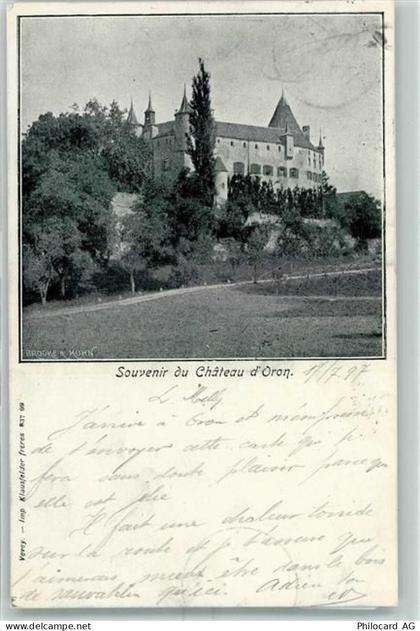 BROOKE & KÜHN
Souvenir du Château d'Oron. 17/7. 97
J'arrive à Oron et m'empresse
de t'envoyer cette carte qui te
fera sans doute plaisir parce que
elle est jolie
Il fait une chaleur torride
sur la route et je t'assure que
j'aimerais mieux être dans le bois
de qu'ici. Adieu ton
Vevey. — Imp. Klausfelder frères 837 99
Copyright AG Philocard PHILOCARD AG